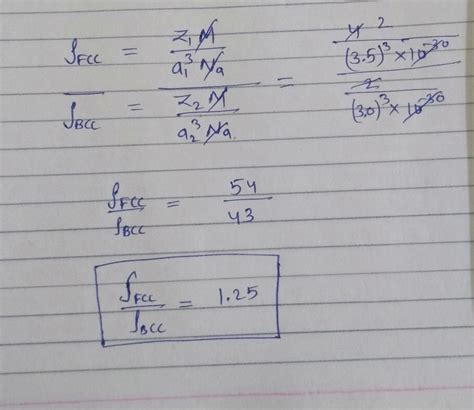 ρFCC / ρBCC = (Z₁M / a₁³Na) / (Z₂M / a₂³Na.) = (4 2 / (3.5)³ × 10⁻³⁰) / (2 / (3.0)³ × 10⁻³⁰)
ρFCC / ρBCC = 54 / 43
ρFCC / ρBCC = 1.25